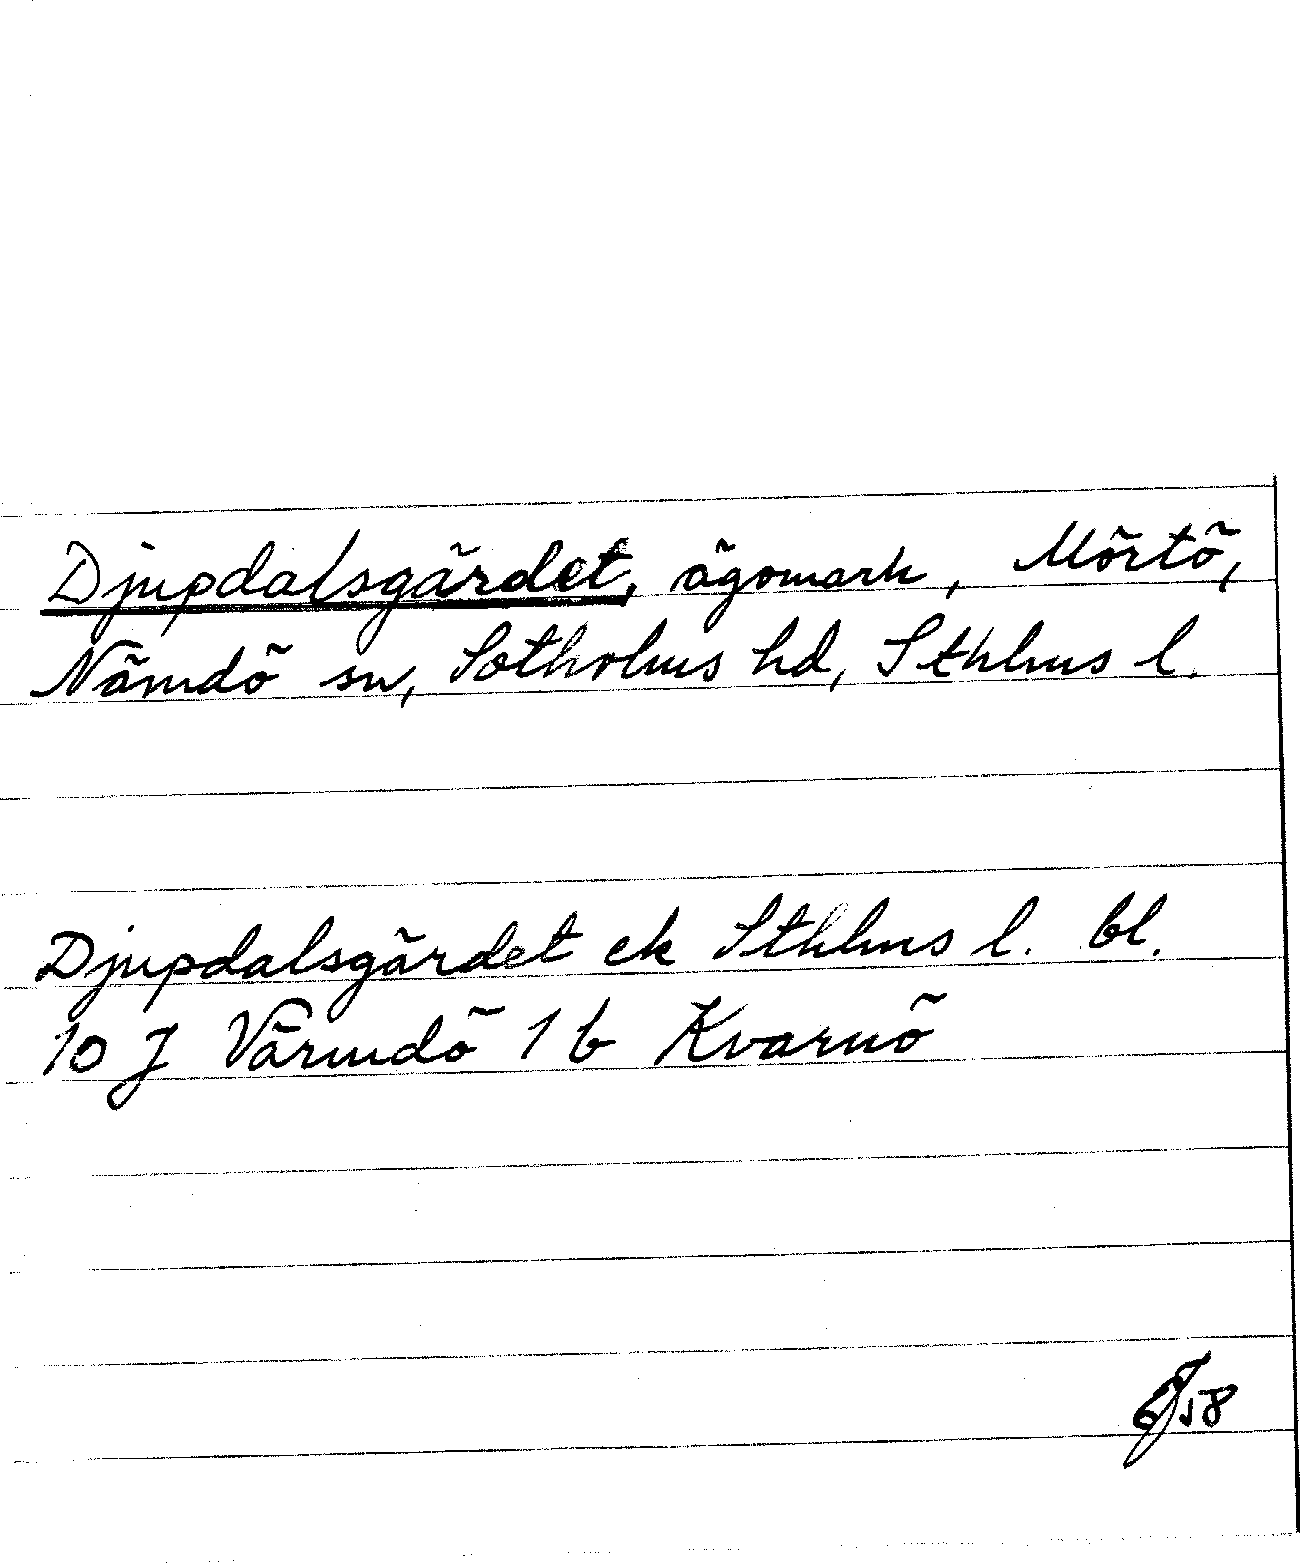 Djupdalsgärdet, ägomark, Mörtö,
Nämdö sn, Sotholms hd, Sthlms l.
Djupdalsgärdet ek Sthlms l. bl.
10 J Värmdö 1 b Kvarnö
58